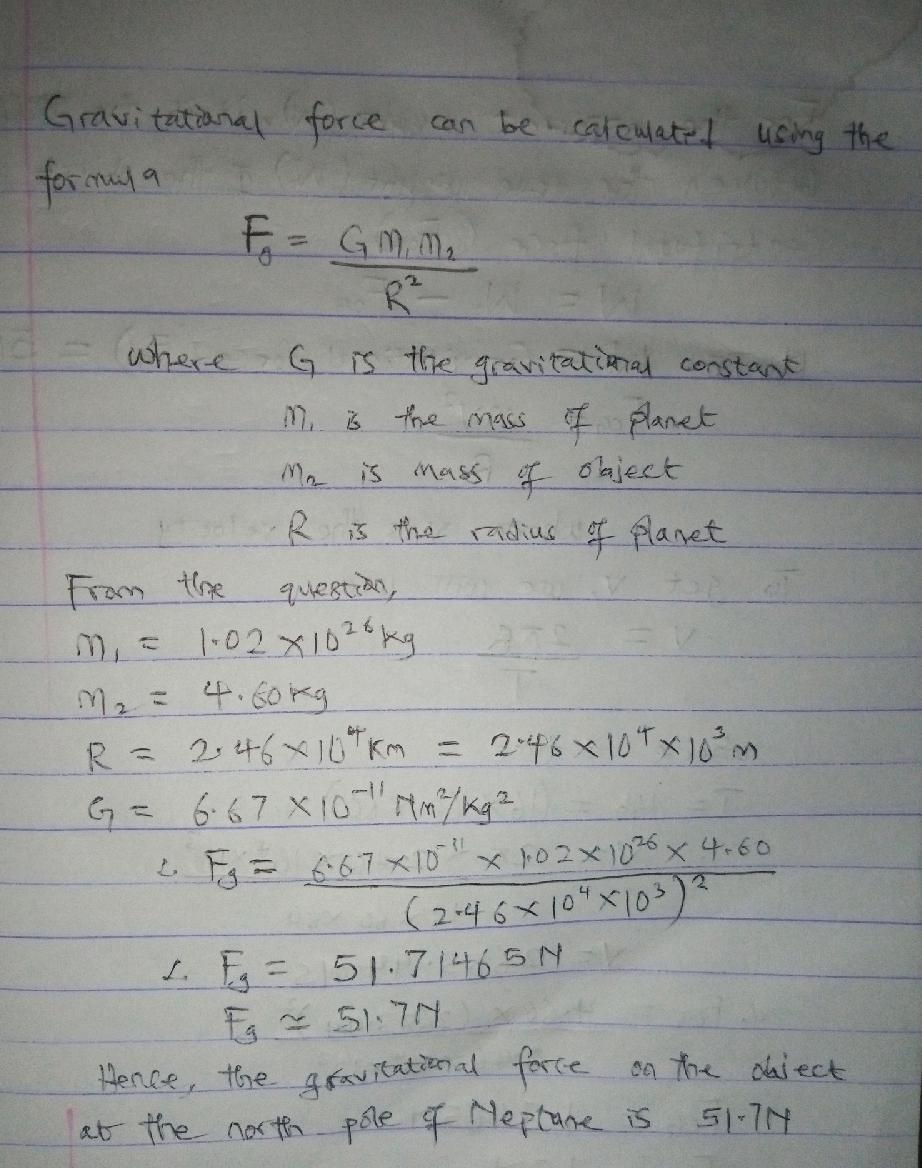 Gravitational force can be calculated using the
formula
Fg = G m₁ m₂
R²
where G is the gravitational constant
m₁ is the mass of planet
m₂ is mass of object
R is the radius of planet
From the question,
m₁ = 1.02 × 10²⁶ kg
m₂ = 4.60 kg
R = 2.46 × 10⁴ km = 2.46 × 10⁴ × 10³ m
G = 6.67 × 10⁻¹¹ Nm²/kg²
∴ Fg = 6.67 × 10⁻¹¹ × 1.02 × 10²⁶ × 4.60
(2.46 × 10⁴ × 10³)²
∴ Fg = 51.71465 N
Fg ≃ 51.7N
Hence, the gravitational force on the object
at the north pole of Neptune is 51.7N